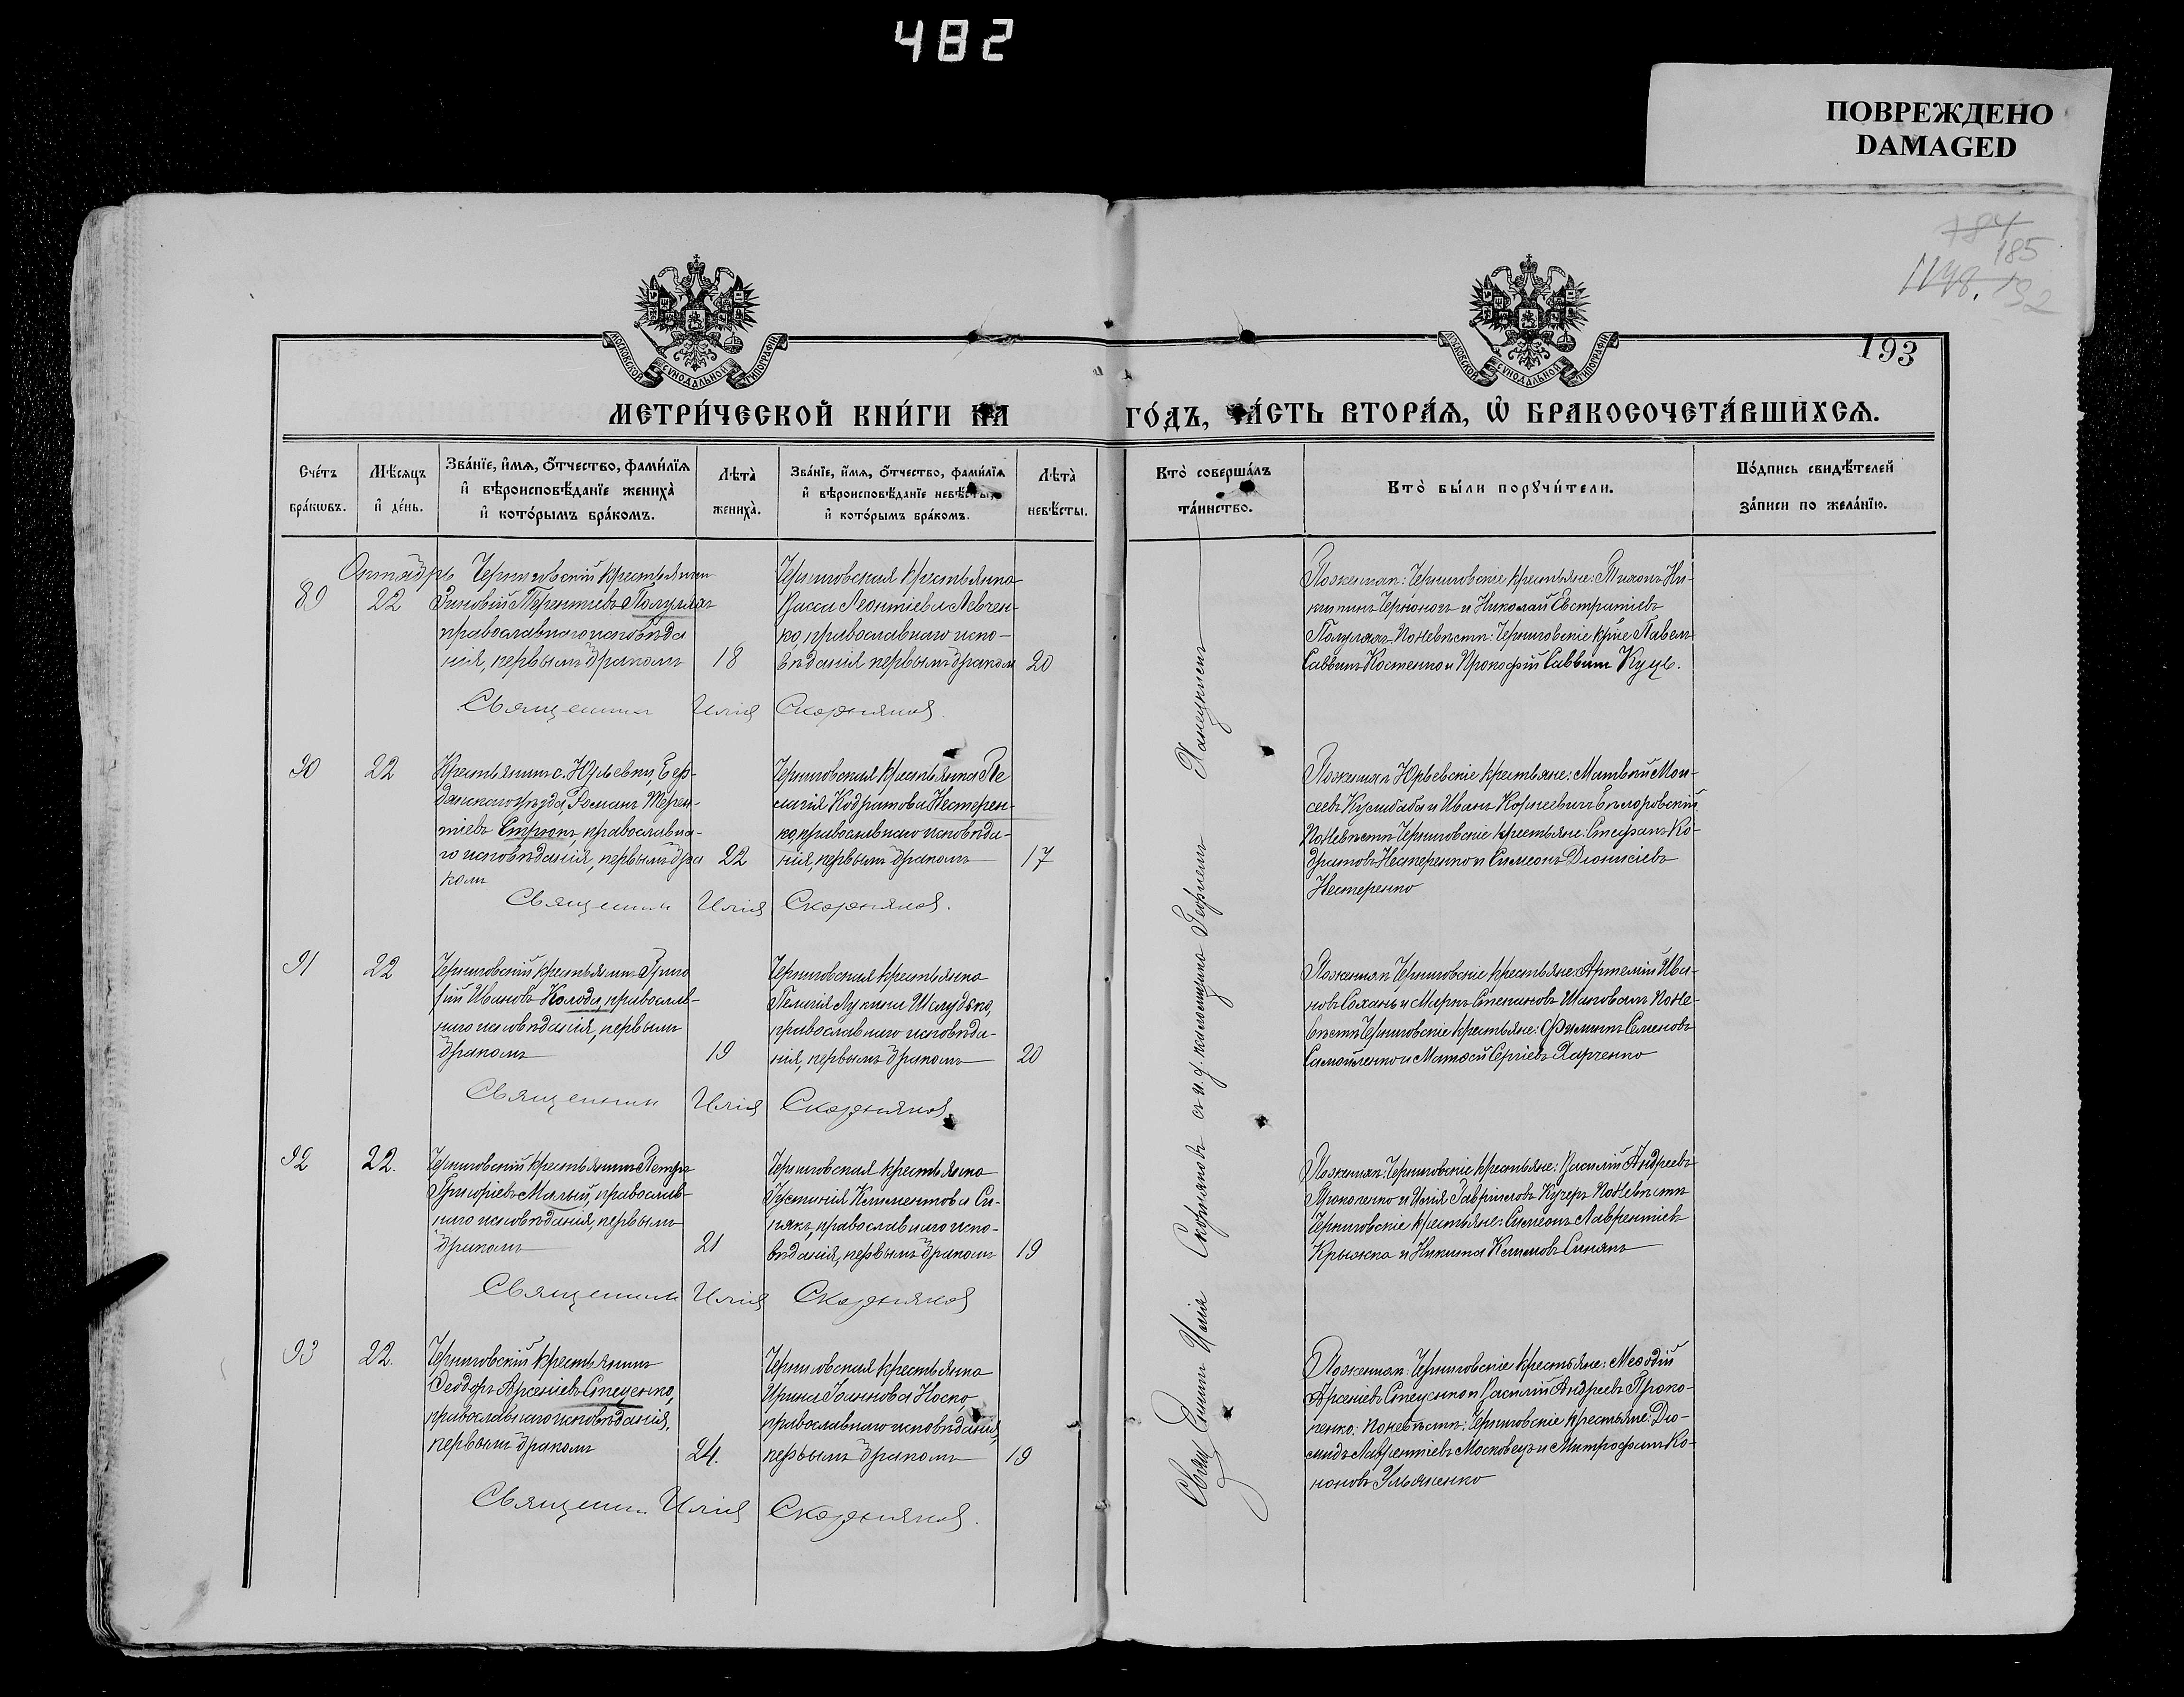 482
ПОВРЕЖДЕНО
DAMAGED
184
185
193
МОСКОВСКОЙ СѴНОДАЛЬНОЙ ТИПОГРАФІИ
МОСКОВСКОЙ СѴНОДАЛЬНОЙ ТИПОГРАФІИ
МЕТРИ́ЧЕСКОЙ КНИ́ГИ НА
ГО́ДЪ, ЧА́СТЬ ВТОРА́Я, Ѡ БРАКОСОЧЕТА́ВШИХСЯ.
Сче́тъ
бра́кѡвъ.
Мѣ́сяцъ
и҆ де́нь.
Зва́нїе, и҆́мя, ѻ҆́тчество, фами́лїя
и҆ вѣроисповѣ́данїе жениха̀
и҆ кото́рымъ бра́комъ.
Лѣта̀
жениха̀.
Зва́нїе, и҆́мя, ѻ҆́тчество, фами́лїя
и҆ вѣроисповѣ́данїе невѣ́сты,
и҆ кото́рымъ бра́комъ.
Лѣта̀
невѣ́сты.
Кто̀ соверша́лъ
та́инство.
Кто̀ бы́ли порꙋчи́тели.
По́дпись свидѣ́телей
за́писи по жела́нїю.
Октябрь
89
22
Черниговскій крестьянин
Зиновій Терентіевъ Полулях
православнаго исповѣда
нія, первымъ бракомъ
18
Черниговская крестьянка
Васса Леонтіева Левчен-
ко, православнаго испо-
вѣданія первымъ бракомъ
20
Священник Илія Скорняков.
По женихѣ: Черниговскіе крестьяне: Тихонъ Ни-
китинъ и Николай Евстратіевъ
Полуляхъ. По невѣстѣ: Черниговскіе кр-не Павелъ
Саввинъ Костенко и Прокофій Саввинъ Куць.
90
22
Крестьянинъ с. Юрьевки, Бер-
дянскаго уѣзда, Романъ Терен-
тіевъ православна-
го исповѣданія, первымъ бра
комъ
22
Черниговская крестьянка Пе
лагія Кодратова Нестерен-
ко, православнаго исповѣда-
нія, первымъ бракомъ
17
Священник Илія Скорняков.
По женихѣ Юрьевскіе крестьяне: Матвѣй Мои-
сеевъ и Иванъ
По невѣстѣ Черниговскіе крестьяне: Стефанъ Ко-
дратовъ Нестеренко и Симеонъ Діонисіевъ
Нестеренко
91
22
Черниговскій крестьянинъ Григо
рій Ивановъ Колода, православ-
наго исповѣданія, первымъ
бракомъ
19
Черниговская крестьянка
Пелагія Лукина Шалудько,
православнаго исповѣда-
нія, первымъ бракомъ
20
Священник Илія Скорняков.
По женихѣ Черниговскіе крестьяне: Артемій Ива-
новъ Сохань и Маркъ Степановъ Шаповалъ. По не-
вѣстѣ Черниговскіе крестьяне: Филиппъ Семеновъ
Самойленко и Матѳей Сергіевъ Харченко
92
22.
Черниговскій крестьянинъ Петръ
Григоріевъ Малый, православ-
наго исповѣданія, первымъ
бракомъ
21
Черниговская крестьянка
Іустинія Климентова Си-
някъ, православнаго испо-
вѣданія, первымъ бракомъ
19
Священник Илія Скорняков
По женихѣ: Черниговскіе крестьяне: Василій Андреевъ
Прокопенко и Илія Гавриловъ Кучеръ. По невѣстѣ
Черниговскіе крестьяне: Симеонъ Лаврентіевъ
Крыжка и Никита Климовъ Синякъ
93
22.
Черниговскій крестьянинъ
Ѳеодоръ Арсеніевъ Стеценко,
православнаго исповѣданія,
первымъ бракомъ
24.
Черниговская крестьянка
Ирина Іоаннова Носко,
православнаго исповѣданія,
первымъ бракомъ
19
Священник Илія Скорняков.
По женихѣ: Черниговскіе крестьяне: Меѳодій
Арсеніевъ Стеценко и Василій Андреевъ Проко-
пенко. По невѣстѣ: Черниговскіе крестьяне: Діо-
мидъ Лаврентіевъ Московецъ и Митрофанъ Ко-
ноновъ Ульяненко
Илія Скорняковъ с и. д. псаломщика